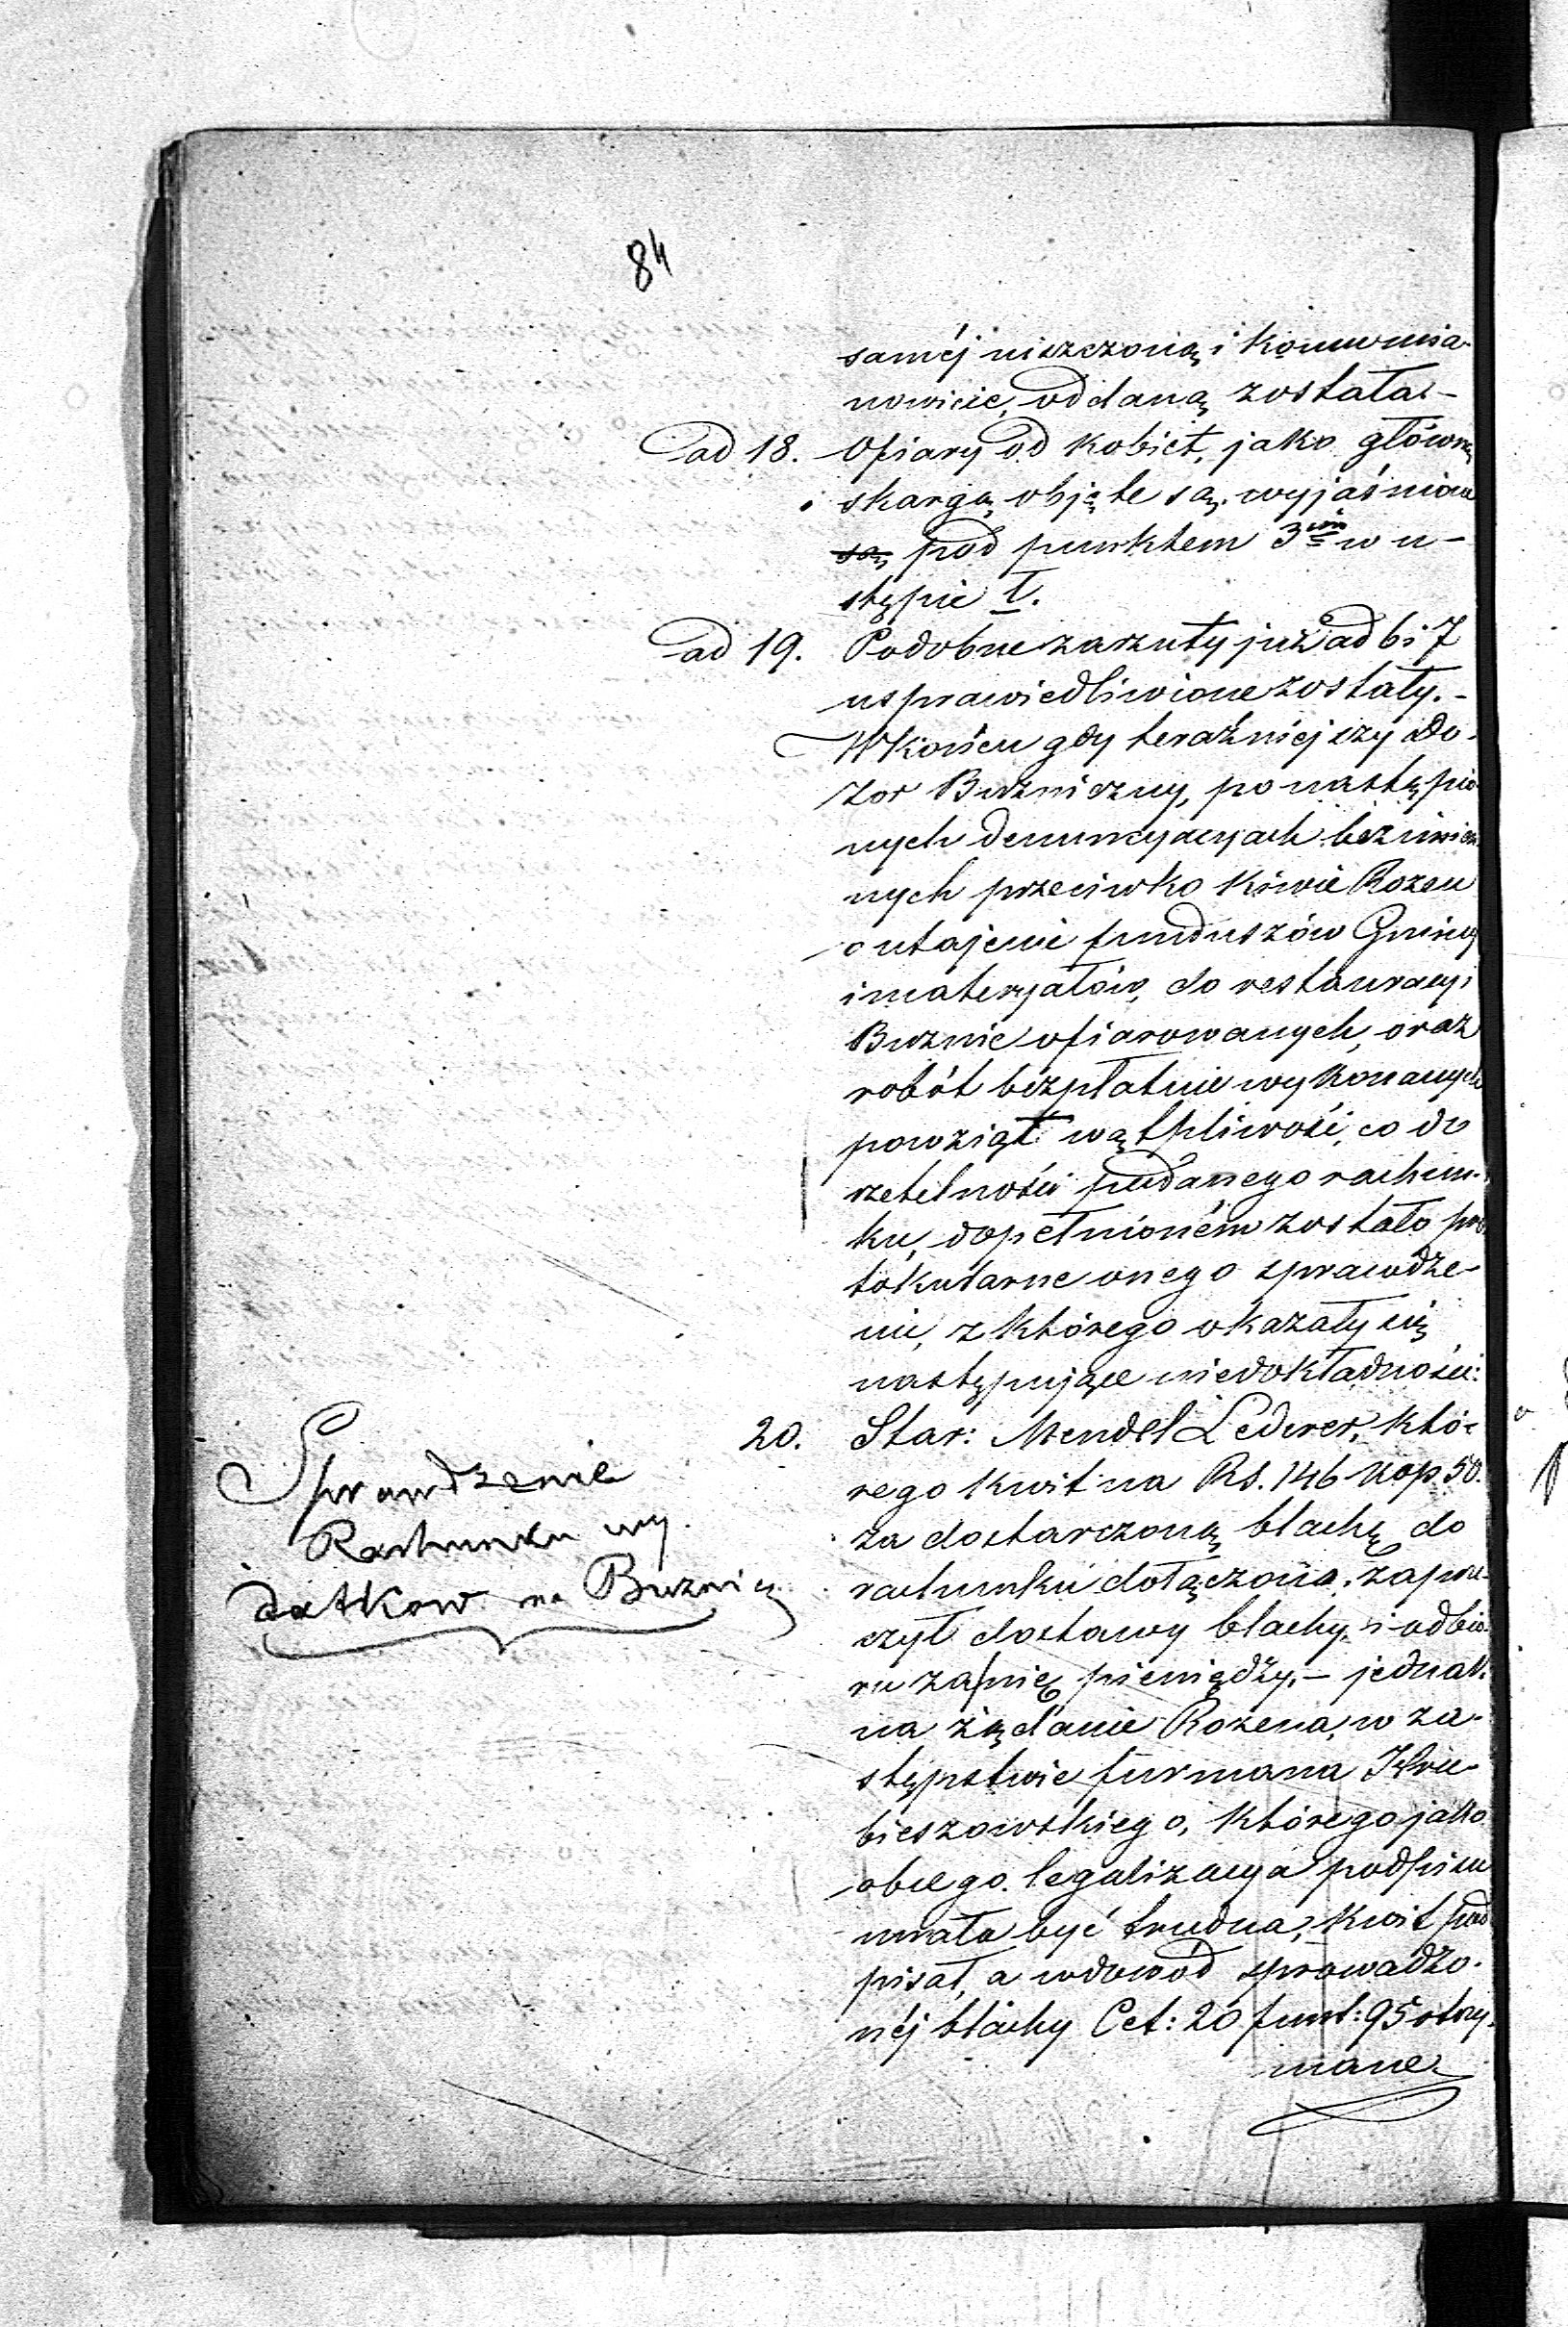 84
samėj niszczoną i komu mia-
nowicie, oddaną została.-
ad 18. Ofiary od kobiet, jako główną
skargą objęte są, wyjaśnione
są pod punktem 3im w u-
stępie I.
ad 19. Podobne zarzuty już ad 6 i 7
usprawiedliwione zostały.-
W końcu gdy teraźniejszy Do-
zor Bużniczny, po nastąpio-
nych denuncyacyach bezimien-
nych przeciwko Kiwie Rozen
o utajenie funduszów Gminy
i materyałów, do restauracyi
Bużnic ofiarowanych, oraz
robót bezpłatnie wykonanych
powziął wątpliwość, co do
rzetelności podanego rachun-
ku, dopełnioném zostało pro-
tokularne onego sprawdze-
nie, z którego okazały się
następujące niedokładności:
20. Star: Mendel Lederer, któ-
rego kwit na Rs. 146 kop. 50.
za dostarczoną blachę do
rachunku dołączono, zaprze-
czył dostawy blachy, i odbio-
ru za nię pieniędzy,- jednak
na żądanie Rozena, w za-
stępstwie furmana Hru-
bieszowskiego, którego jako
obcego legalizacya podpisu
miała być trudna, kwit pod
pisał, a wdowód sprowadzo-
néj blachy Cet: 20 funt: 95 otrzy-
mane
Sprawdzenie
Rachunku wy-
datkow na Bużnicę